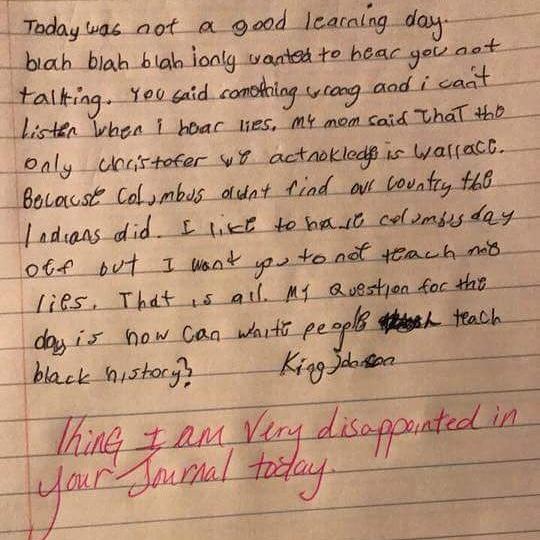 Today was not a good learning day.
blah blah blah ionly wanted to hear you not
talking. You said something wrong and i can't
listen when i hear lies. My mom said That the
only christofer we acknoledge is Wallace.
Because Columbus didnt find our country the
Indians did. I like to have columbus day
off but I want you to not teach me
lies. That is all. My question for the
day is how can white people teach
black history? King Johnson
King I am very disappointed in
your Journal today.